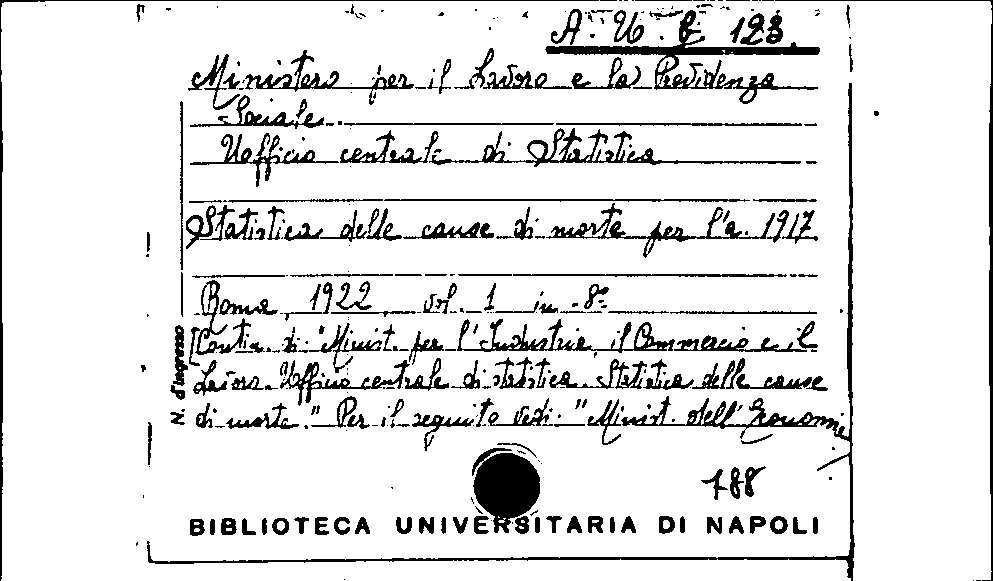 A. U. E 123.
Ministero per il Lavoro e la Previdenza
Sociale.
Ufficio centrale di Statistica
Statistica delle cause di morte per l'a. 1917
Roma, 1922, vol. 1 in-8º
[Contin. di: "Minist. per l'Industria, il Commercio e il
Lavoro. Ufficio centrale di statistica. Statistica delle cause
di morte." Per il seguito vedi: "Minist. dell'Economi
N. d'ingresso
788
BIBLIOTECA UNIVERSITARIA DI NAPOLI